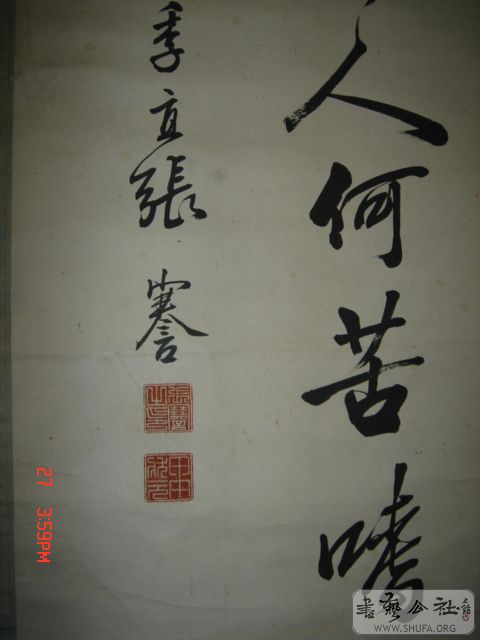 人何苦嗜
季直張謇
張謇之印
甲申狀元
27 3:59PM
書藝公社
WWW.SHUFA.ORG